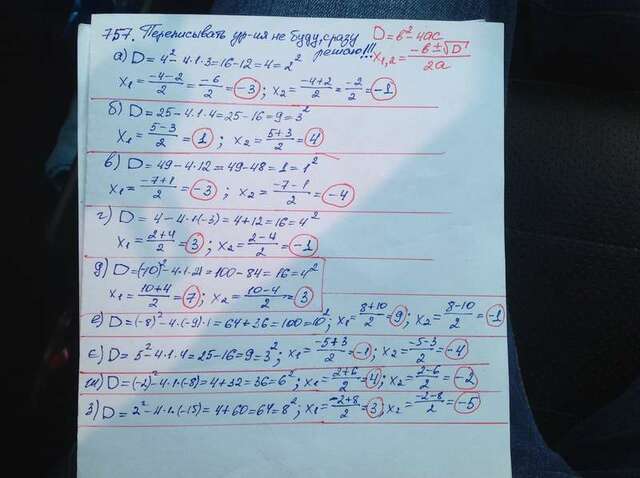 757. Переписывать ур-ия не буду, сразу решаю!!!
D = b² - 4ac
x₁,₂ = (-b ± √D) / 2a
а) D = 4² - 4·1·3 = 16 - 12 = 4 = 2²
x₁ = (-4-2)/2 = -6/2 = -3; x₂ = (-4+2)/2 = -2/2 = -1
б) D = 25 - 4·1·4 = 25 - 16 = 9 = 3²
x₁ = (5-3)/2 = 1; x₂ = (5+3)/2 = 4
в) D = 49 - 4·12 = 49 - 48 = 1 = 1²
x₁ = (-7+1)/2 = -3; x₂ = (-7-1)/2 = -4
г) D = 4 - 4·1·(-3) = 4 + 12 = 16 = 4²
x₁ = (2+4)/2 = 3; x₂ = (2-4)/2 = -1
д) D = (-10)² - 4·1·21 = 100 - 84 = 16 = 4²
x₁ = (10+4)/2 = 7; x₂ = (10-4)/2 = 3
е) D = (-8)² - 4·(-9)·1 = 64 + 36 = 100 = 10²; x₁ = (8+10)/2 = 9; x₂ = (8-10)/2 = -1
є) D = 5² - 4·1·4 = 25 - 16 = 9 = 3²; x₁ = (-5+3)/2 = -1; x₂ = (-5-3)/2 = -4
ж) D = (-2)² - 4·1·(-8) = 4 + 32 = 36 = 6²; x₁ = (2+6)/2 = 4; x₂ = (2-6)/2 = -2
з) D = 2² - 4·1·(-15) = 4 + 60 = 64 = 8²; x₁ = (-2+8)/2 = 3; x₂ = (-2-8)/2 = -5